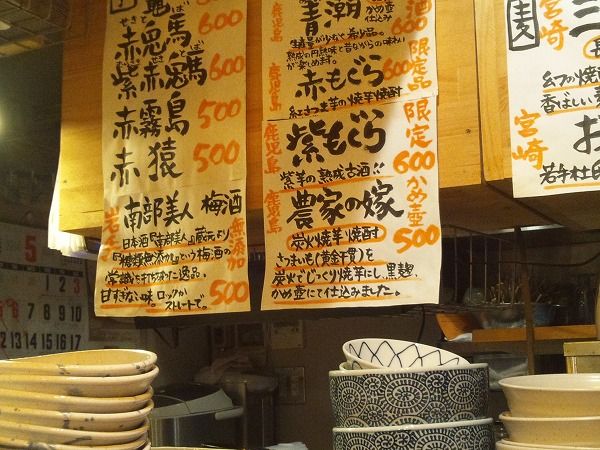 赤兎馬 600
紫赤兎馬 600
赤霧島 500
赤猿 500
南部美人 梅酒
無添加
日本酒『南部美人』蔵元より
常識を打ちやぶった逸品。
甘すぎない味。ロックか
ストレートで。 500
鹿児島
青潮
かめ壺
仕込み
酒
600
生産量が少なく希少品。
熟成の円熟味と昔ながらの味わい
が楽しめます。
鹿児島
赤もぐら
限定品
600
紅さつま芋の焼芋焼酎
鹿児島
紫もぐら
限定
600
紫芋の熟成古酒!!
鹿児島
農家の嫁
かめ壺
500
炭火焼芋・焼酎
さつまいも(黄金千貫)を
炭火でじっくり焼芋にし、黒麹、
かめ壺にて仕込みました。
宮崎
幻の焼
香ばしい
宮崎
お
5
2 3
6 7 8 9 10
12 13 14 15 16 17